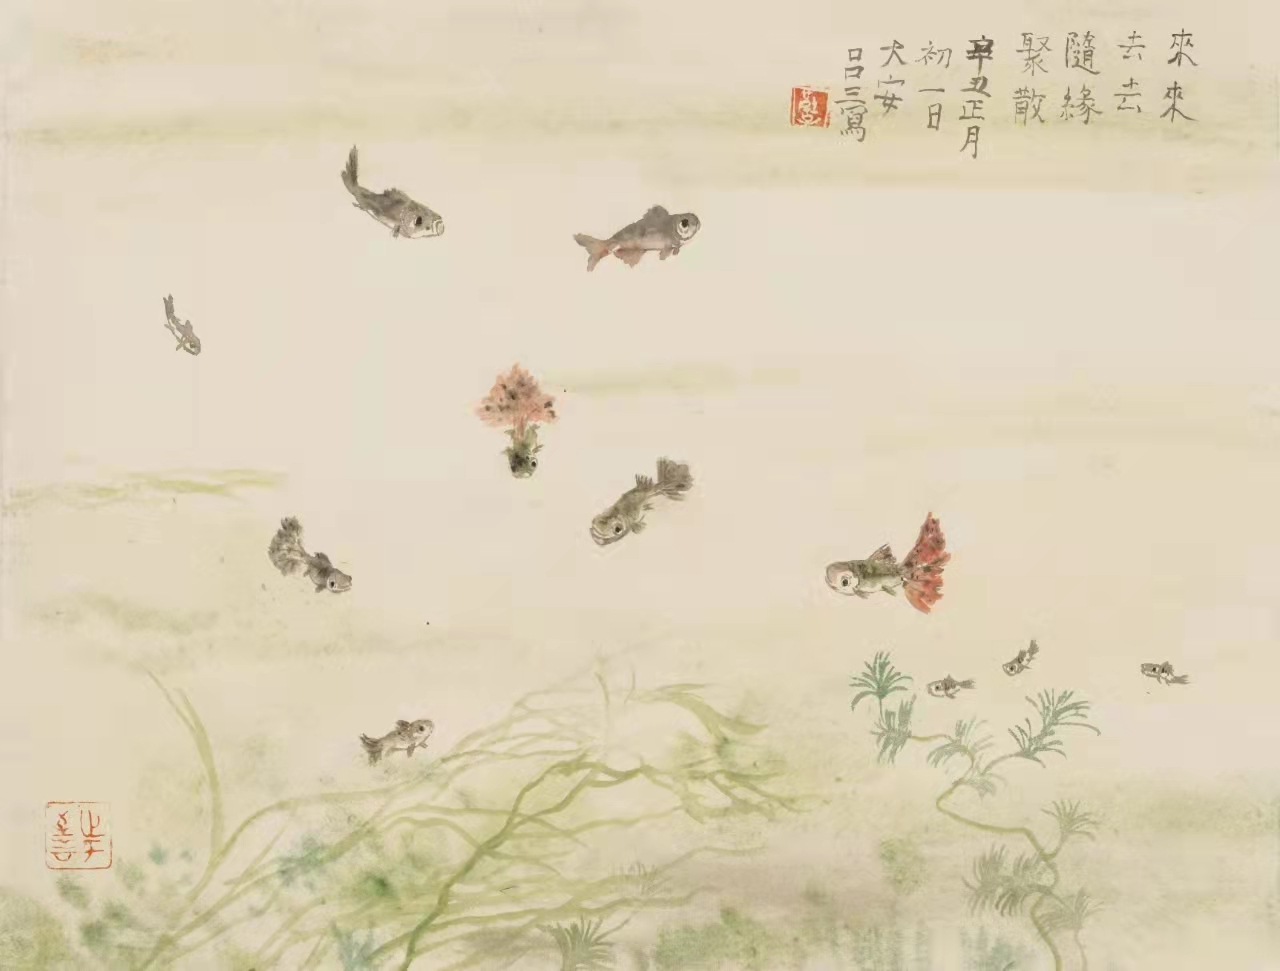 來來
去去
隨緣
聚散
辛丑正月
初一日
大安
呂三寫
止于
至善